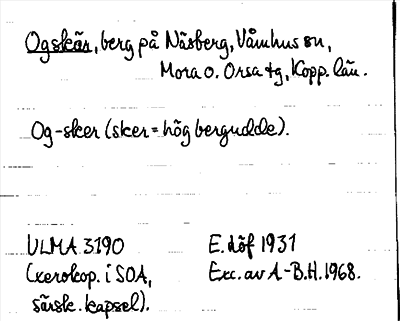 Ogskär, berg på Näsberg, Våmhus sn,
Mora o. Orsa tg, Kopp. län.
Og-sker (sker = hög bergudde).
ULMA 3190 E. Löf 1931
(xerokop. i SOA, Exc. av A-B.H. 1968.
särsk. kapsel).